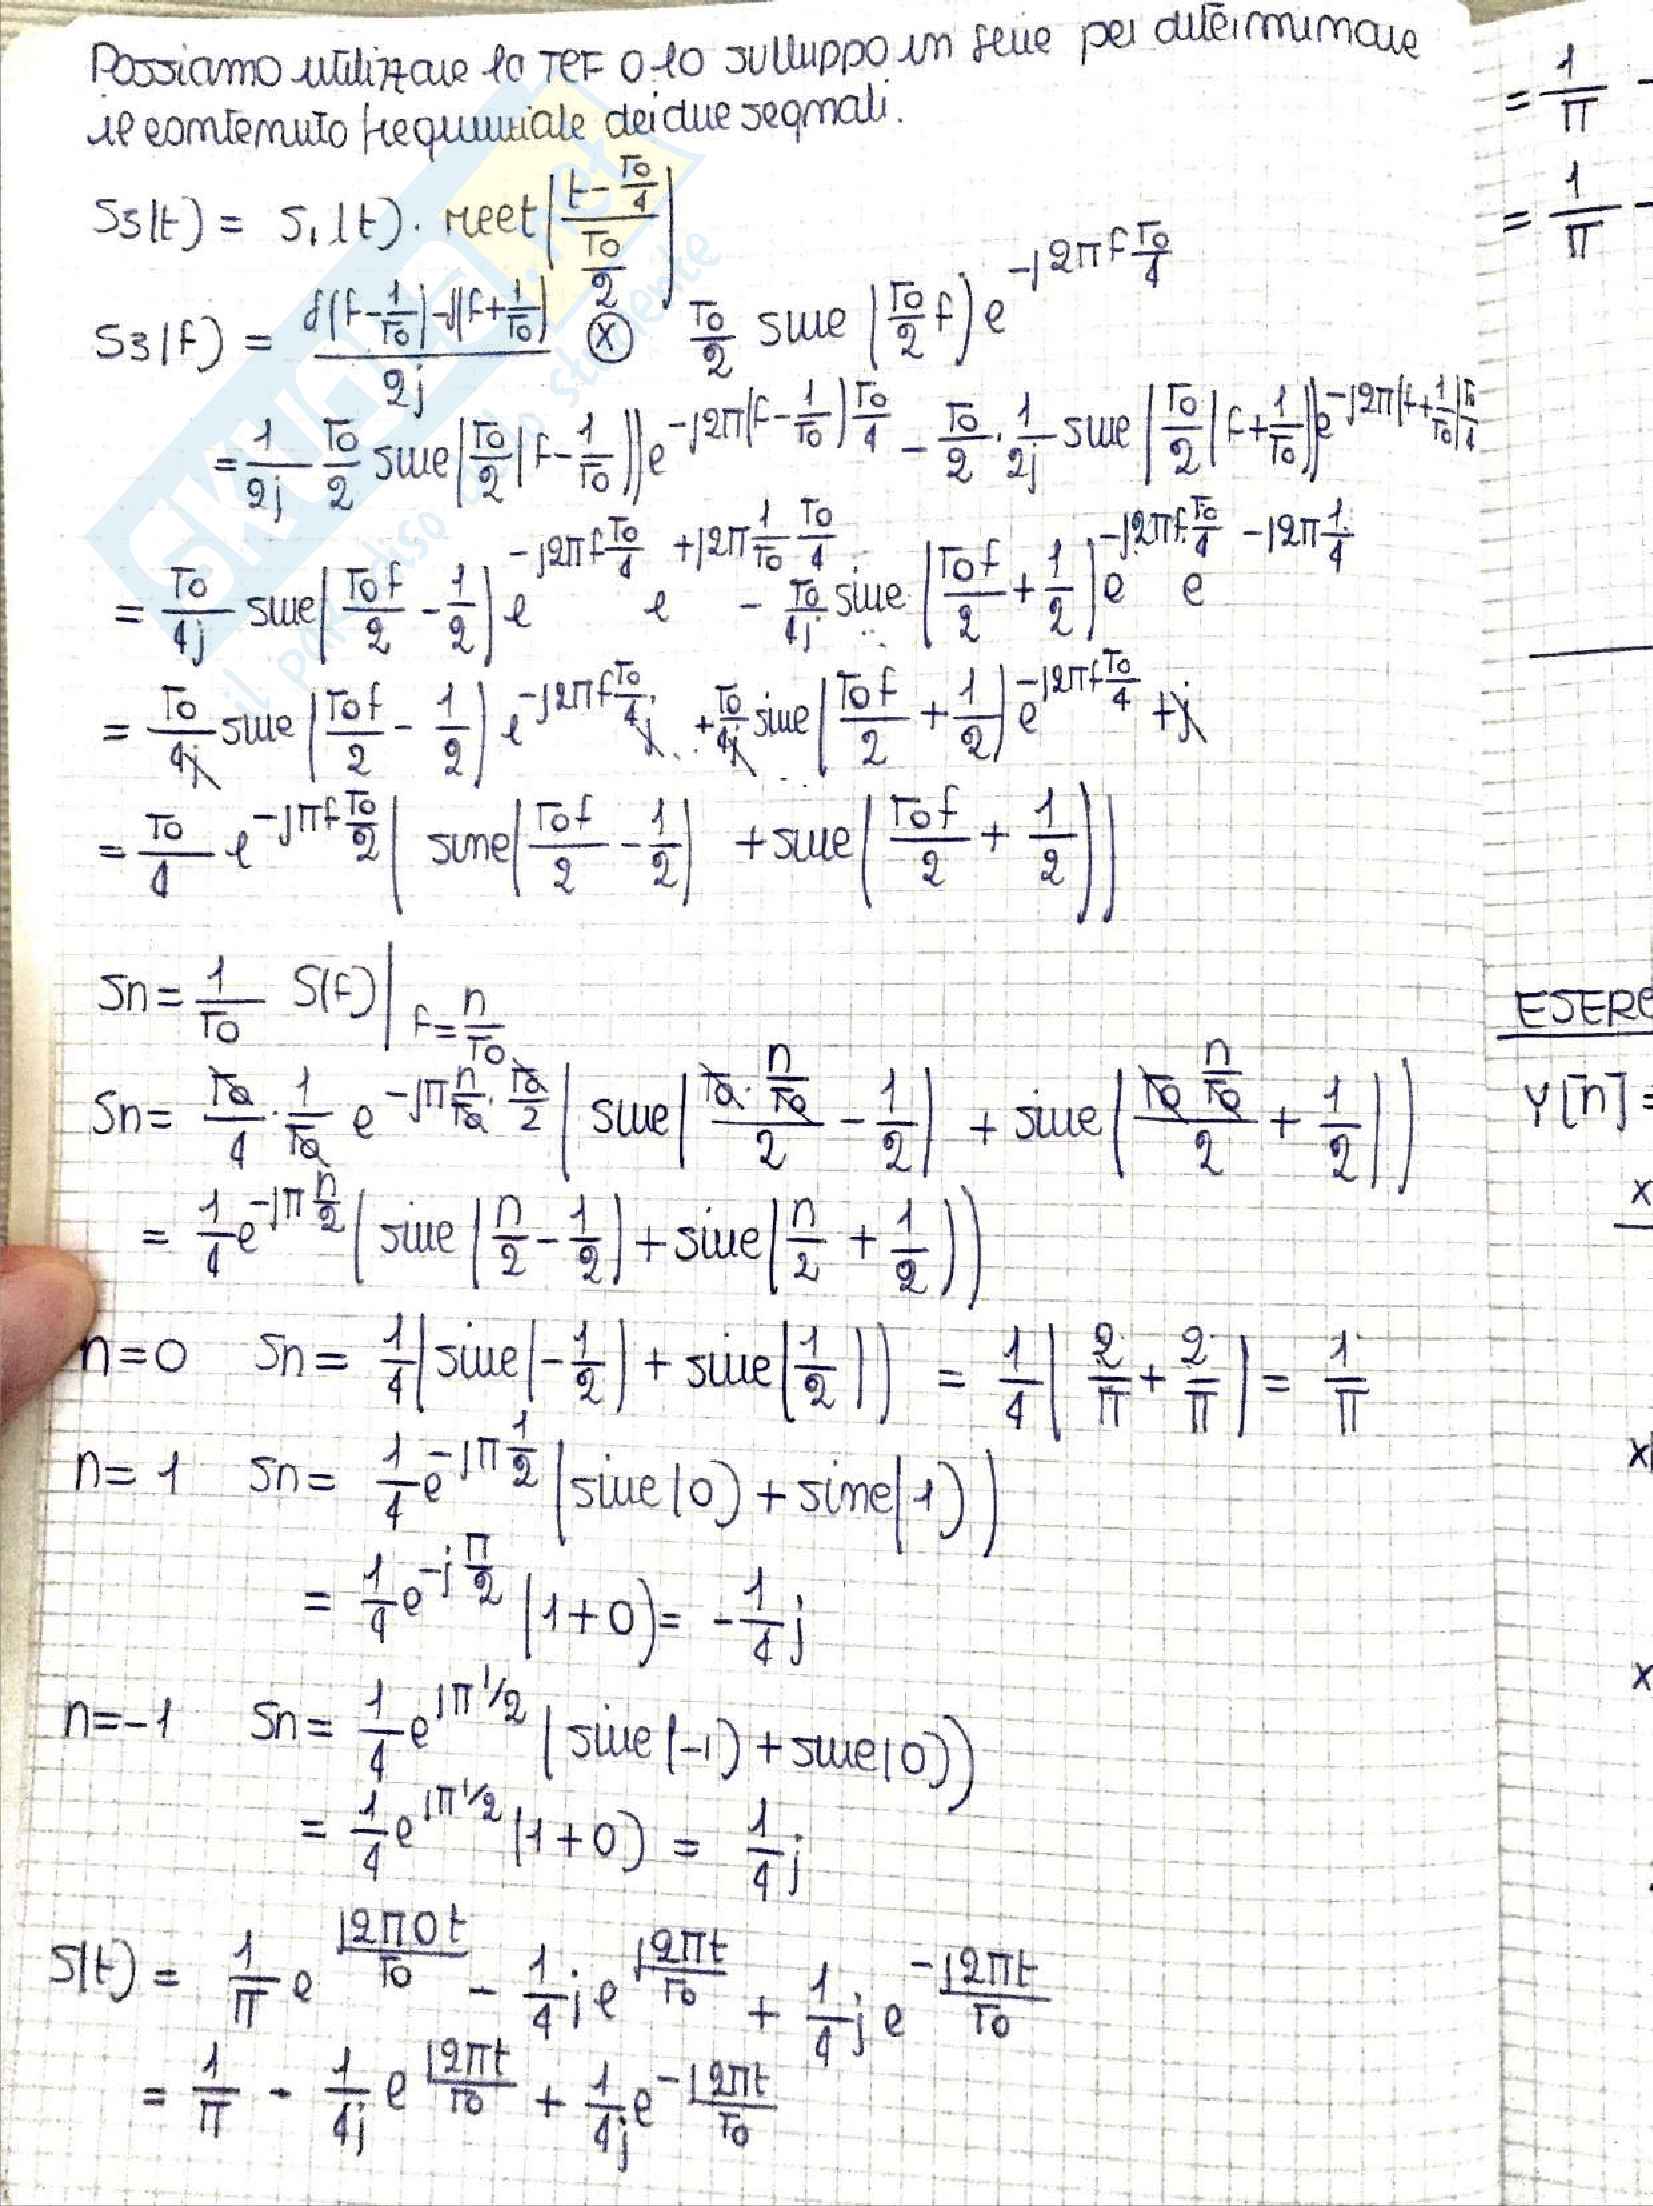 Possiamo utilizzare la TCF o lo sviluppo in serie per determinare
il contenuto frequenziale dei due segnali.
S3(t) = S1(t) · rect((t - T0/4)/(T0/2))
S3(f) = (δ(f - 1/T0) - δ(f + 1/T0))/2j ⊗ T0/2 sinc(T0/2 f) e^(-j2πf T0/4)
= 1/2j · T0/2 sinc(T0/2 (f - 1/T0)) e^(-j2π(f - 1/T0) T0/4) - T0/2 · 1/2j sinc(T0/2 (f + 1/T0)) e^(-j2π(f + 1/T0) T0/4)
= T0/4j sinc(T0f/2 - 1/2) e^(-j2πf T0/4) e^(+j2π 1/T0 T0/4) - T0/4j sinc(T0f/2 + 1/2) e^(-j2πf T0/4) e^(-j2π 1/4)
= T0/4j sinc(T0f/2 - 1/2) e^(-j2πf T0/4) j + T0/4j sinc(T0f/2 + 1/2) e^(-j2πf T0/4) +j
= T0/4 e^(-jπf T0/2) (sinc(T0f/2 - 1/2) + sinc(T0f/2 + 1/2))
Sn = 1/T0 S(f)|f = n/T0
Sn = T0/4 · 1/T0 e^(-jπ n/T0 · T0/2) (sinc((T0 · n/T0)/2 - 1/2) + sinc((T0 n/T0)/2 + 1/2))
= 1/4 e^(-jπ n/2) (sinc(n/2 - 1/2) + sinc(n/2 + 1/2))
n=0 Sn = 1/4 (sinc(-1/2) + sinc(1/2)) = 1/4 (2/π + 2/π) = 1/π
n=1 Sn = 1/4 e^(-jπ 1/2) (sinc(0) + sinc(1))
= 1/4 e^(-j π/2) (1+0) = -1/4 j
n=-1 Sn = 1/4 e^(jπ 1/2) (sinc(-1) + sinc(0))
= 1/4 e^(jπ 1/2) (1+0) = 1/4 j
S(t) = 1/π e^(j2π0t/T0) - 1/4 j e^(j2πt/T0) + 1/4 j e^(-j2πt/T0)
= 1/π - 1/4j e^(j2πt/T0) + 1/4j e^(-j2πt/T0)
= 1/π -
= 1/π -
ESERC
Y[n] =
x
x
x
SKUOLA.net
il paradiso dello studente